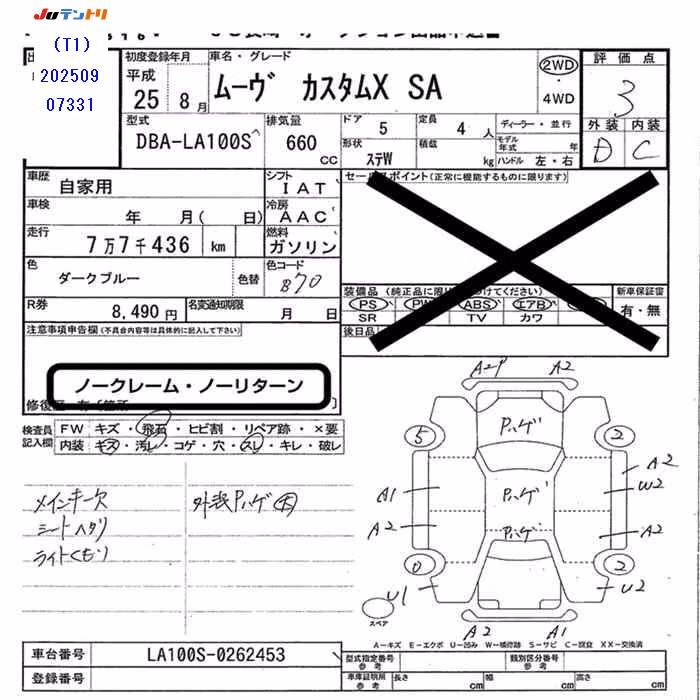 Juテントリ
(T1)
202509
07331
初度登録年月
平成
25年 8月
車名・グレード
ムーヴ カスタムX SA
2WD
・
4WD
評価点
3
外装 内装
D C
型式
DBA-LA100S
排気量
660
CC
ドア
5
定員
4人
ディーラー・並行
モデル年式 年
形状
ステW
積載
kg
ハンドル 左・右
車歴
自家用
シフト
IAT
セールスポイント(正常に機能するものに限ります)
車検
年 月( 日)
冷房
AAC
走行
7万7千436 km
燃料
ガソリン
色
ダークブルー
色替
色コード
B70
R券
8,490円
名変通知期限
月 日
装備品(純正品に限り つけてください)
新車保証書
PS PW ABS エアB
SR TV カワ
有・無
後日品
注意事項申告欄(不具合内容等は具体的に記入して下さい)
ノークレーム・ノーリターン
検査員記入欄
FW キズ・飛石・ヒビ割・リペア跡・×要
内装 キズ・汚レ・コゲ・穴・スレ・キレ・破レ
メインキー欠
シートヘタリ
ライトくもり
外装Pハゲ大
A2P A2
Pハゲ
5 2
A2
A1 Pハゲ W2
A2 Pハゲ A2
0 2
U1 U2
スペア
A2 A1
A−キズ E−エクボ U−凹み W−補修跡 S−サビ C−腐食 XX−交換済
車台番号
LA100S-0262453
登録番号
型式指定番号
参考
類別区分番号
参考
車庫証明用
参考
長さ cm 幅 cm 高さ cm